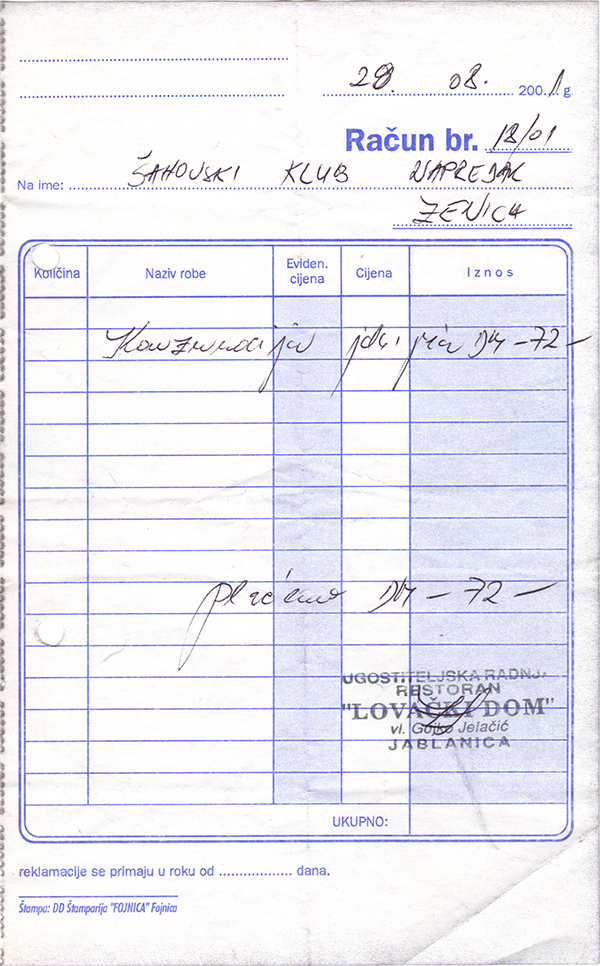 29. 08. 2001 g.
Račun br. 18/01
Na ime: ŠAHOVSKI KLUB NAPREDAK
ZENICA
Količina Naziv robe Eviden. cijena Cijena Iznos
Konzumacija jela i pića DM - 72 -
plaćeno DM - 72 -
UGOSTITELJSKA RADNJA
RESTORAN
"LOVAČKI DOM"
vl. Gojko Jelačić
JABLANICA
UKUPNO:
reklamacije se primaju u roku od .................. dana.
Štampa: DD Štamparija "FOJNICA" Fojnica